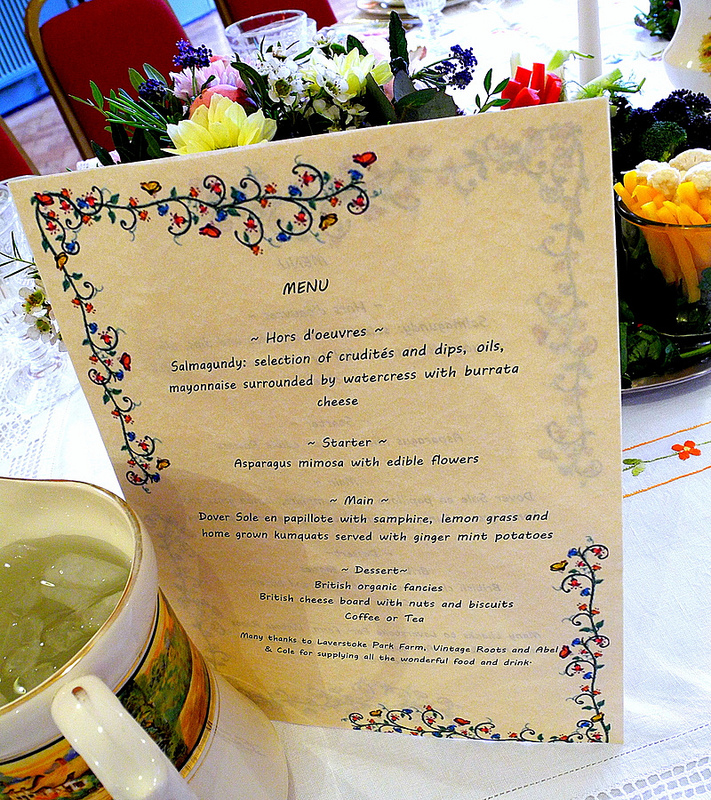 MENU
~ Hors d'oeuvres ~
Salmagundy: selection of crudités and dips, oils,
mayonnaise surrounded by watercress with burrata
cheese
~ Starter ~
Asparagus mimosa with edible flowers
~ Main ~
Dover Sole en papillote with samphire, lemon grass and
home grown kumquats served with ginger mint potatoes
~ Dessert~
British organic fancies
British cheese board with nuts and biscuits
Coffee or Tea
Many thanks to Laverstoke Park Farm, Vintage Roots and Abel
& Cole for supplying all the wonderful food and drink.